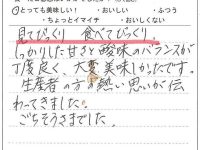 ①とても美味しい！ ・おいしい ・ふつう
・ちょっとイマイチ ・おいしくない
見てびっくり 食べてびっくり。
しっかりした甘さと酸味のバランスが
丁度良く、大変美味しかったです。
生産者の方の熱い思いが伝
わってきました。
ごちそうさまでした。